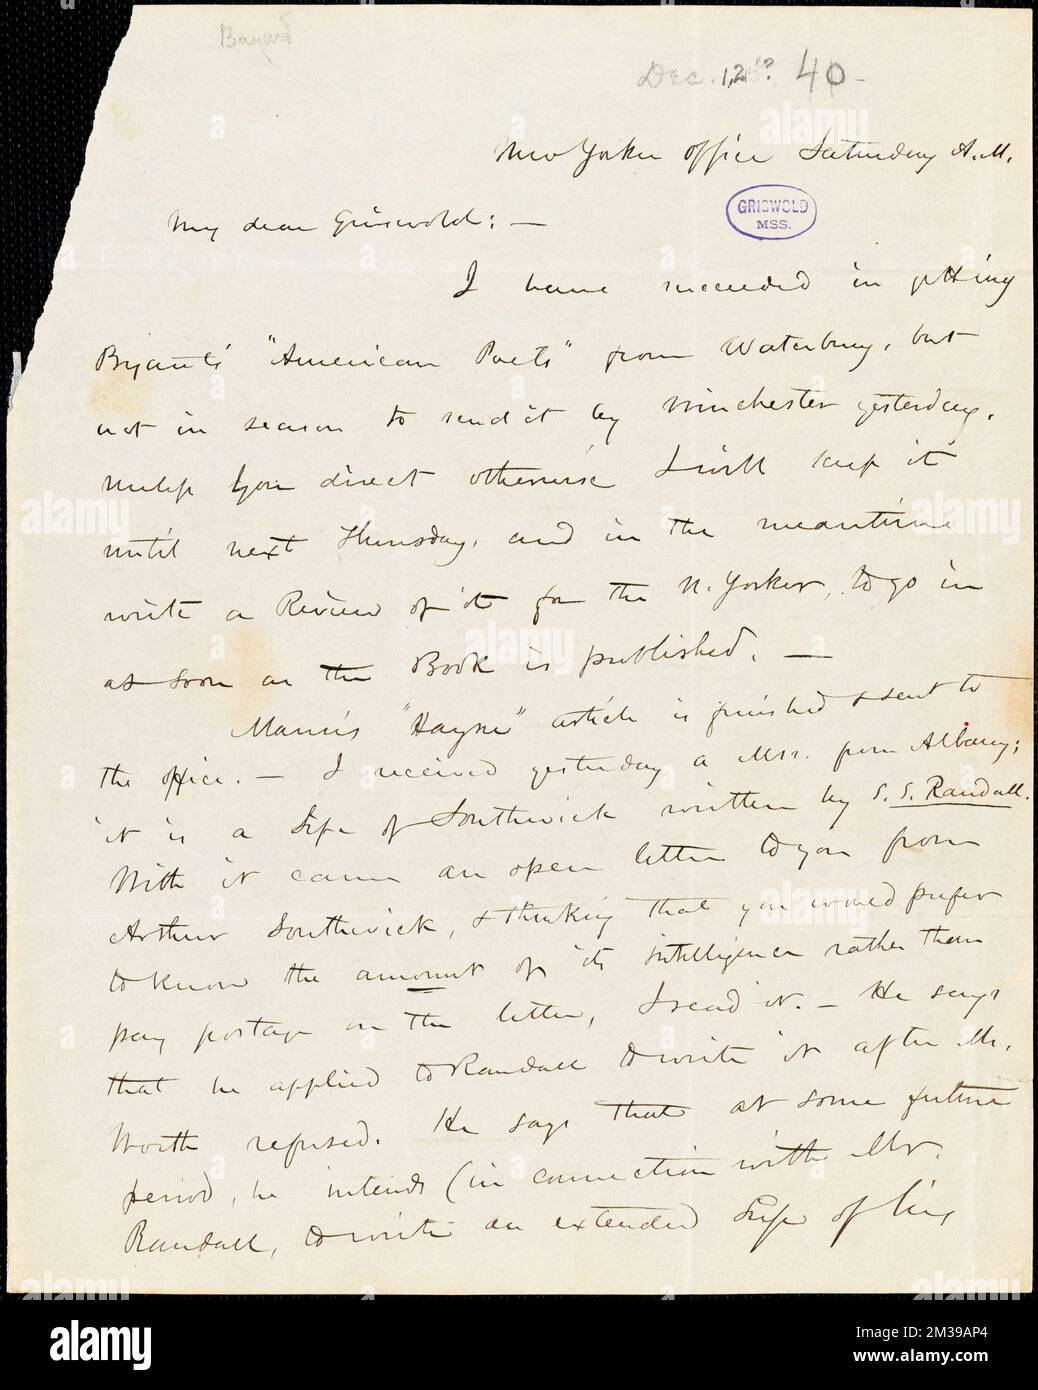 Bayard
Dec. 12, 40 -
New Yorker office Saturday A.M.
GRISWOLD
MSS.
My dear Griswold: —
I have succeeded in getting
Bryant's "American Poets" from Waterbury, but
not in season to send it by Winchester yesterday.
Unless you direct otherwise I will keep it
until next Thursday, and in the meantime
write a Review of it for the N. Yorker, to go in
as soon as the Book is published. —
Mann's "Hayne" article is finished & sent to
the office. — I received yesterday a Mss. from Albany;
it is a Life of Southwick written by S. S. Randall.
With it came an open letter to you from
Arthur Southwick, & thinking that you would prefer
to know the amount of its intelligence rather than
pay postage on the letter, I read it. — He says
that he applied to Randall to write it after Mr.
Worth refused. He says that at some future
period, he intends (in connection with Mr.
Randall, to write an extended Life of his
alamy
Image ID: 2M39AP4
www.alamy.com